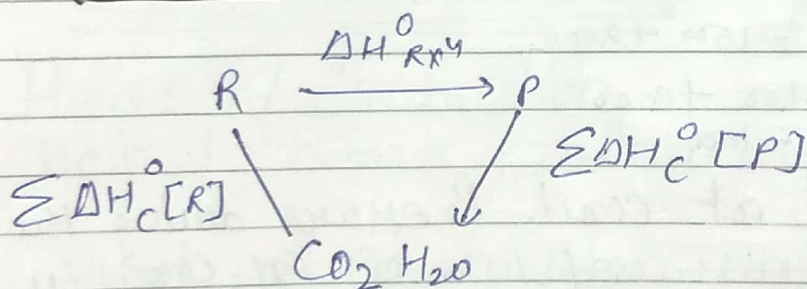 ΔH°Rxⁿ
R → P
ΣΔH°C[R]
ΣΔH°C[P]
CO2 H2O